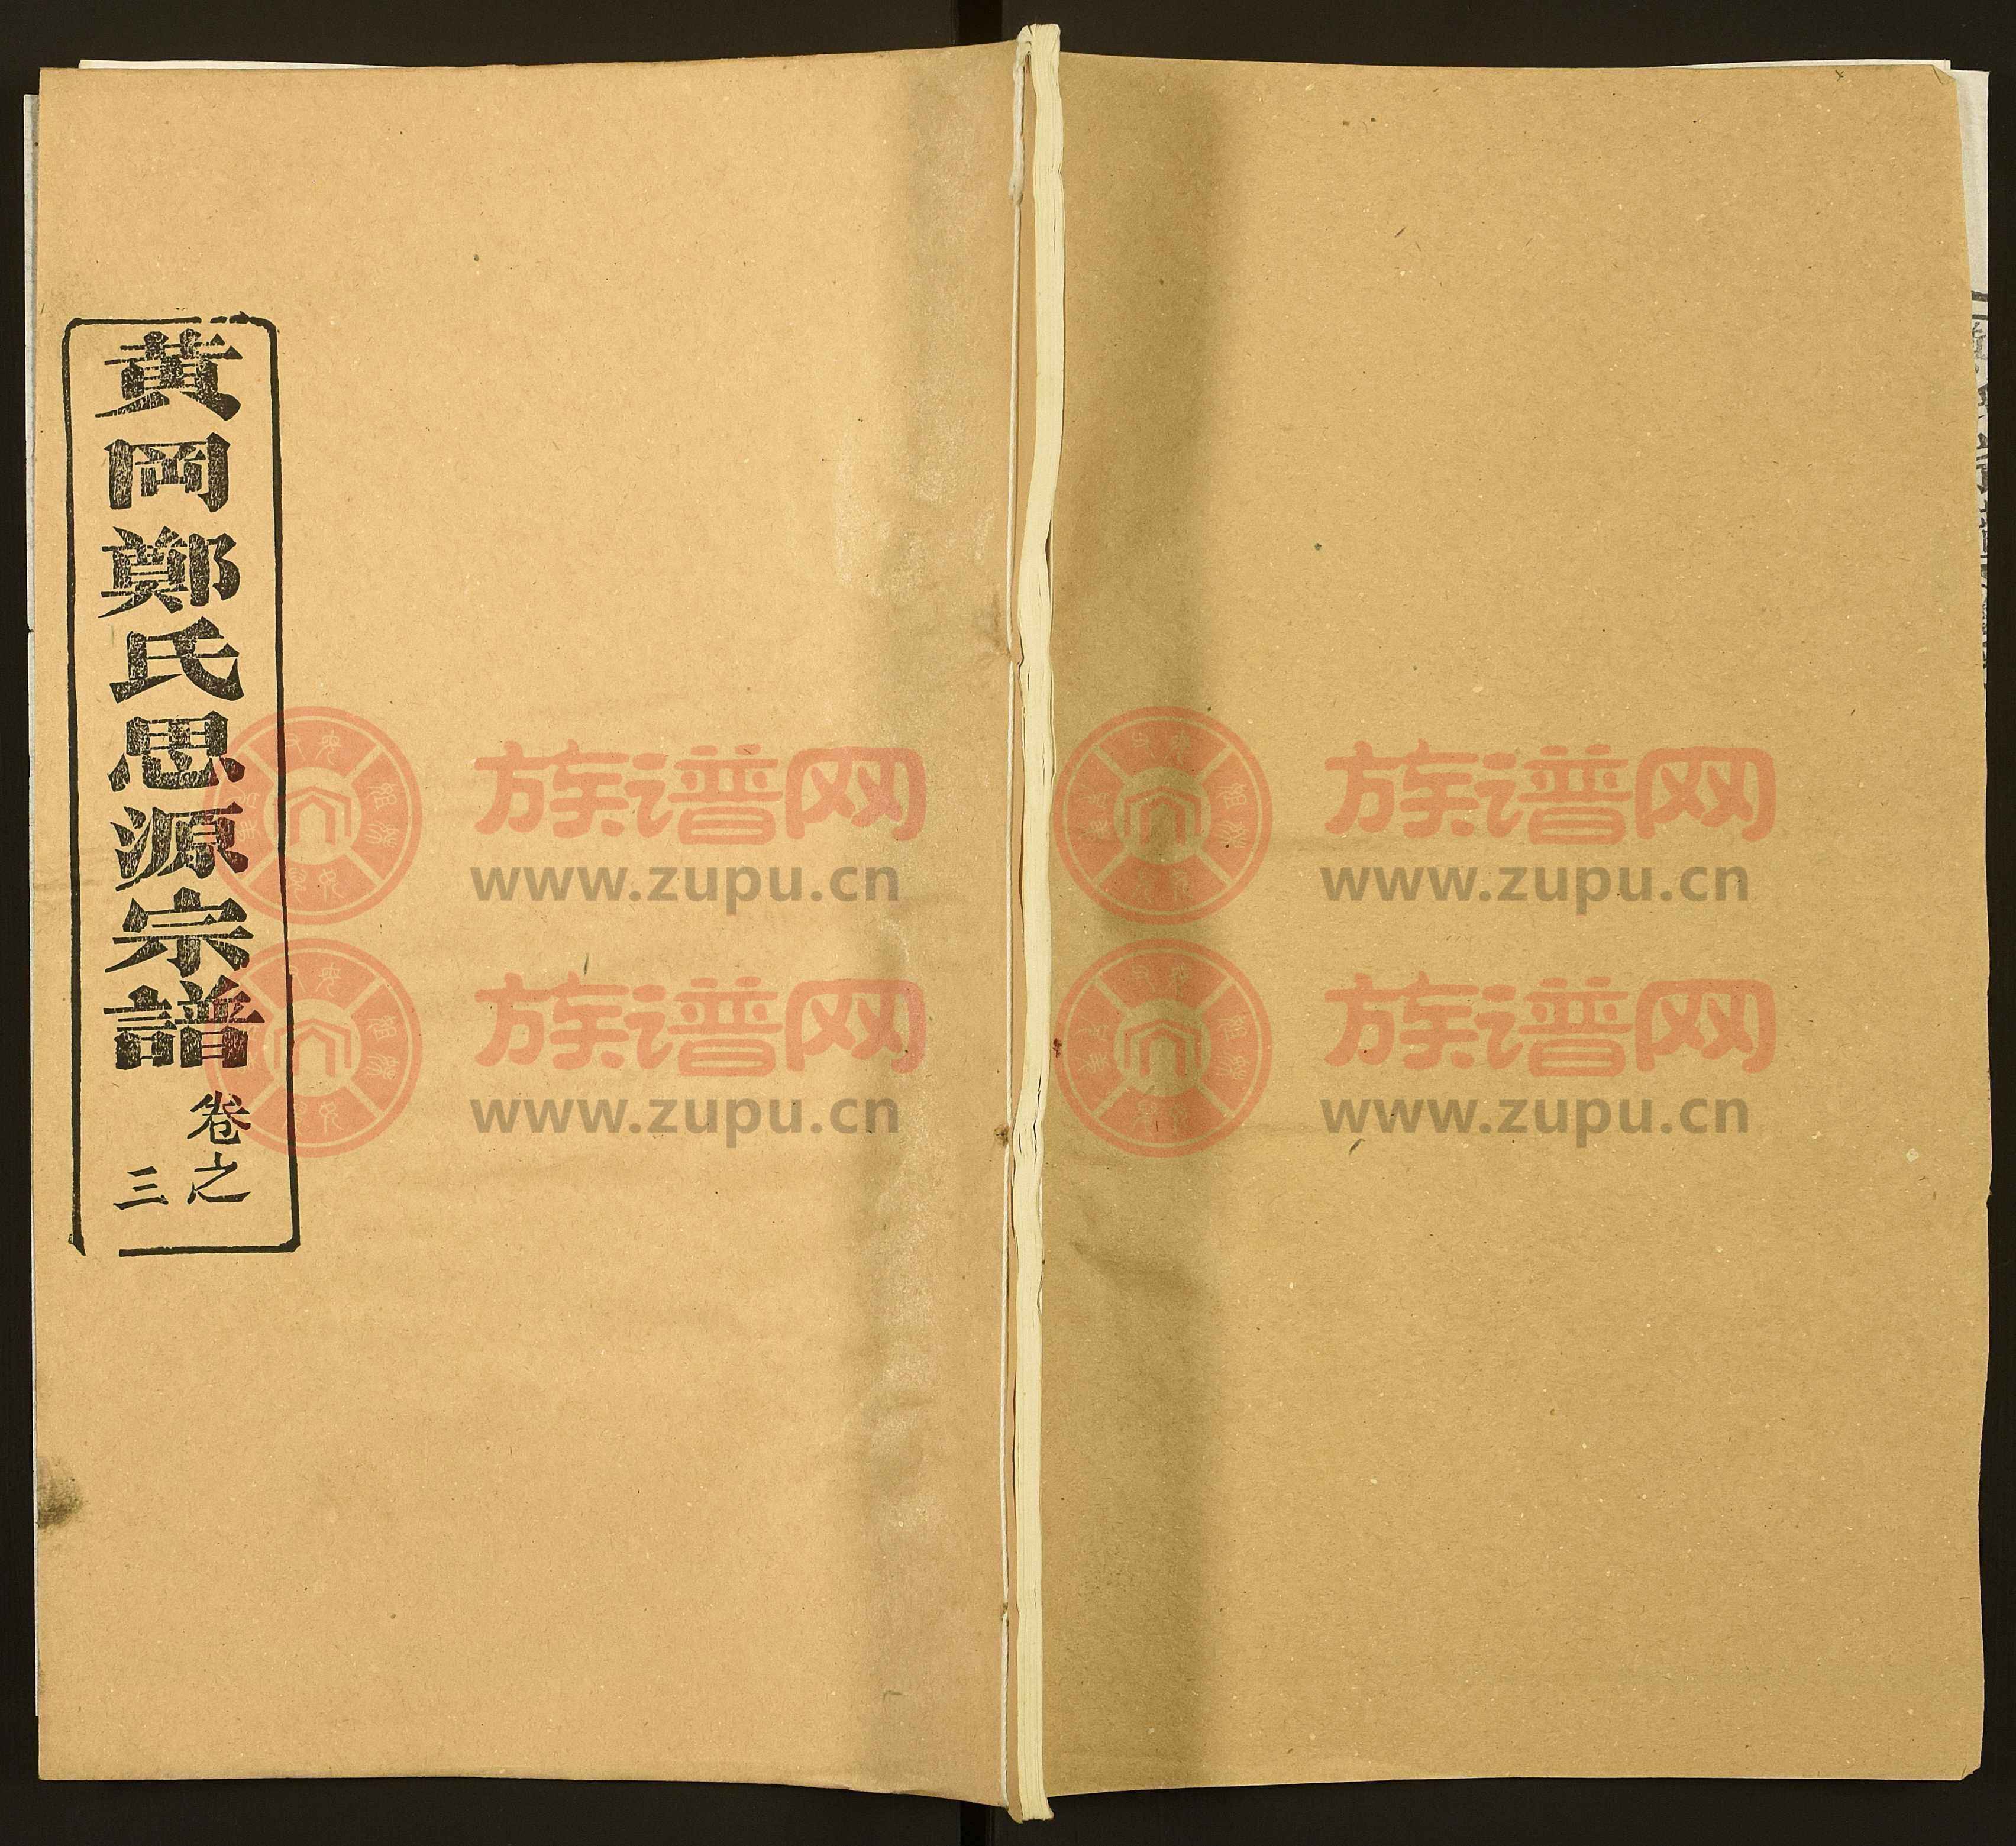 黄岡鄭氏思源宗譜
卷之
三
族谱网
www.zupu.cn
族谱网
www.zupu.cn
族谱网
www.zupu.cn
族谱网
www.zupu.cn